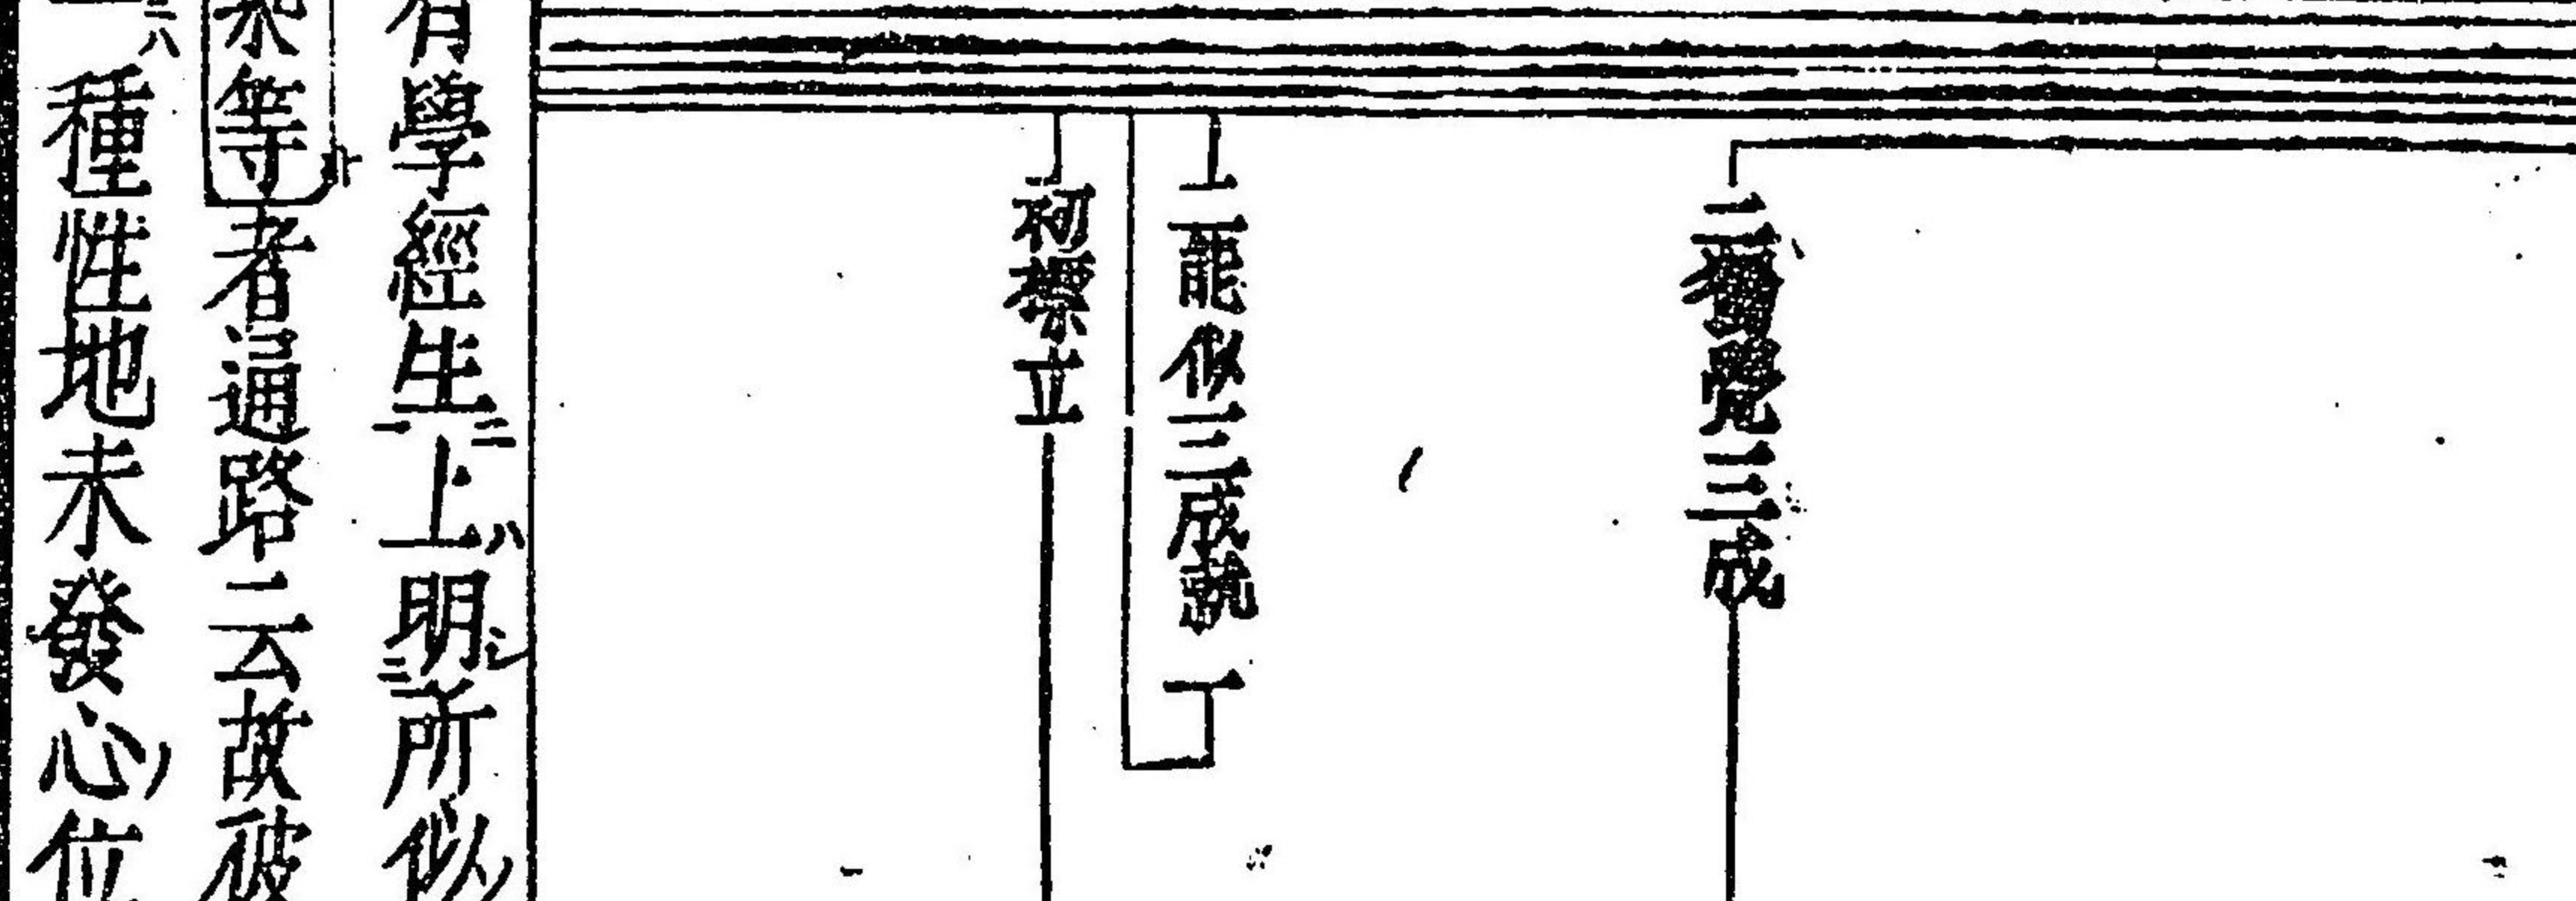 二獨覺三成
二能似三成就
初標立
有學經生上明所似
等者通路云故彼
種性地未發心位